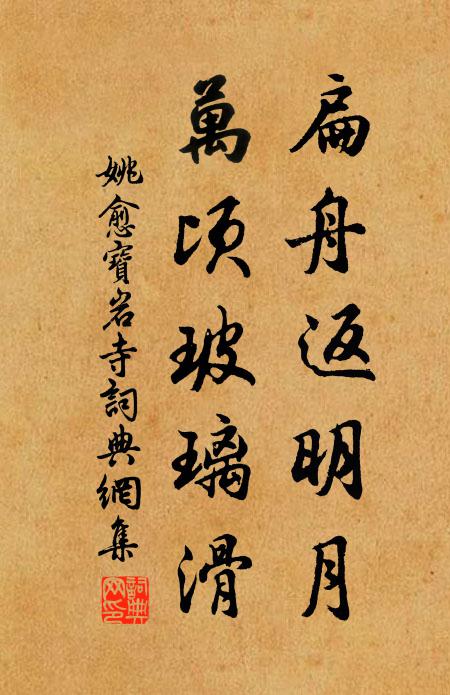 扁舟返明月
萬頃玻璃滑
姚愈寶岩寺詞典網集
詞典網印